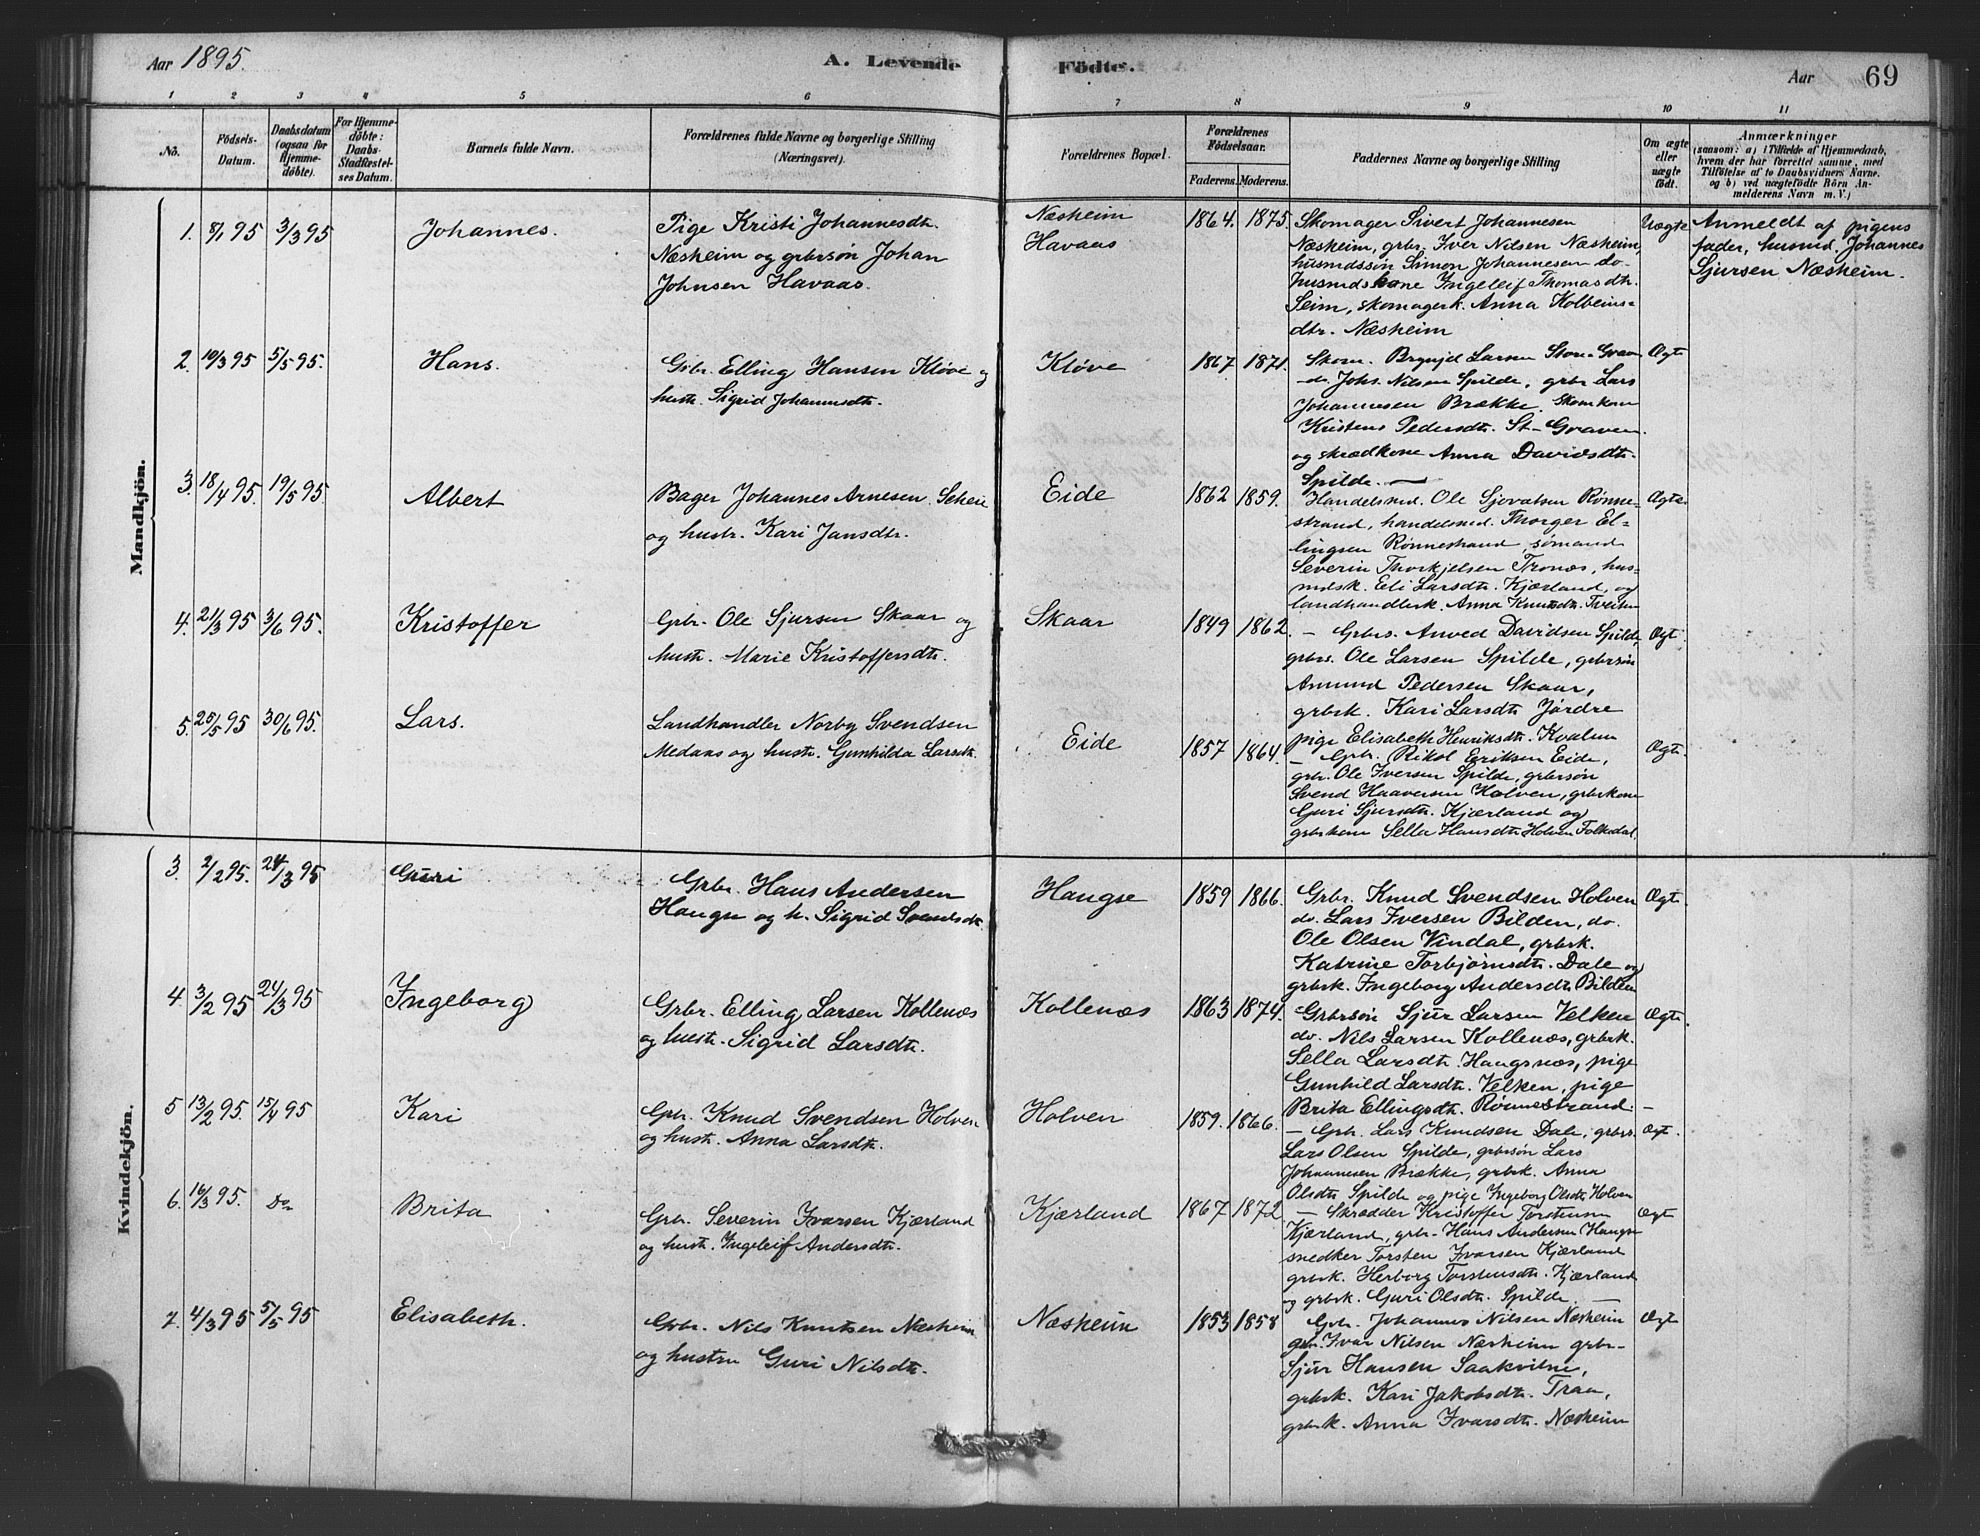 Aar 1895.
A. Levende
Födte.
Aar
69
1 2 3 4 5 6 7 8 9 10 11
No.
Födsels-
Datum.
Daabsdatum
(ogsaa for
Hjemme-
döbte).
For Hjemme-
döbte:
Daabs-
Stadfæstel-
ses Datum.
Barnets fulde Navn.
Forældrenes fulde Navne og borgerlige Stilling
(Næringsvei).
Forældrenes Bopæl.
Forældrenes
Födselsaar.
Faderens. Moderens.
Faddernes Navne og borgerlige Stilling
Om ægte
eller
uægte
födt.
Anmærkninger
(saasom: a) i Tilfælde af Hjemmedaab,
hvem der har forrettet samme, med
Tilföielse af to Daabsvidners Navne.
og b) ved uægtefödte Börn An-
melderens Navn m. V.)
Mandkjön.
1. 8/1 95 3/3 95
Johannes.
Pige Kristi Johannesdtr.
Næsheim og grbrsøn Johan
Johnsen Havaas.
Næsheim
Havaas
1864. 1875.
Skomager Sivert Johannesen
Næsheim, grbr. Iver Nilsen Næsheim,
husmdssøn Simon Johannesen do-
husmdskone Ingeleif Thomasdtr.
Seim, skomagerk. Anna Kolbeins-
dtr. Næsheim
Uægte
Anmeldt af pigens
fader, husmd. Johannes
Sjursen Næsheim.
2. 10/3 95 5/5 95.
Hans.
Grbr. Elling Hansen Kløve og
hustr. Sigrid Johannesdtr.
Kløve
1867 1871.
Skom. Brynjel Larsen Store-Graven
do. Johs. Nilsen Spilde, grbr Lars
Johannesen Brække. Skomkone
Kristens Pedersdtr. St-Graven.
og skrædkone Anna Davidsdtr.
Spilde. —
Ægte
3. 18/4 95. 19/5 95
Albert
Bager Johannes Arnesen Scheie
og hustr. Kari Jansdtr.
Eide
1862 1859.
Handelsmd. Ole Sjovatsen Rønne-
strand, handelsmd. Thorger El-
lingsen Rønnestrand, sømand
Severin Thorkjelsen Tronæs, hus-
mdsk. Eli Larsdtr. Kjærland, og
landhandlerk. Anna Knutsdtr. Tveiten
Ægte.
4. 21/3 95 3/6 95.
Kristoffer
Grbr. Ole Sjursen Skaar og
hustr. Marie Kristoffersdtr.
Skaar
1849 1862.
— Grbrs. Anved Davidsen Spilde,
grbrs. Ole Larsen Spilde, grbrsøn
Amund Pedersen Skaar,
grbrk. Kari Larsdtr Jordre
pige Elisabeth Henriksdtr. Kvalem
Ægt.
5. 25/5 95 30/6 95.
Lars.
Landhandler Norby Svendsen
Medaas og hustr. Gunhilda Larsdtr.
Eide
1857 1864.
— Grbr. Rikol Eeriksen Eide,
grbr. Ole Iversen Spilde, grbrsøn
Svend Haaversen Holven, grbrkone
Guri Sjursdtr. Kjærland og
grbrkone Sella Hansdtr Holven Folkedal.
Ægt.
Kvindekjön.
3. 2/2 95. 24/3 95
Guri
Grbr. Hans Andersen
Haugse og h. Sigrid Svendsdtr.
Haugse
1859 1866.
Grbr. Knud Svendsen Holven
do. Lars Iversen Bilden, do.
Ole Olsen Vindal, grbrk.
Katrine Torbjørnsdtr. Dale og
grbrk. Ingeborg Andersdtr. Bilden
Ægt.
4. 3/2 95 24/3 95
Ingeborg
Grbr. Elling Larsen Kollenæs
og hustr. Sigrid Larsdtr.
Kollenæs
1863 1874.
Grbrsøn Sjur Larsen Velken
do. Nils Larsen Kollenæs, grbrk.
Sella Larsdtr. Haugsnæs, pige
Gunhild Larsdtr. Velken, pige
Brita Ellingsdtr. Rønnestrand. —
Ægt.
5 13/2 95. 15/4 95
Kari
Grbr. Knud Svendsen Holven
og hustr. Anna Larsdtr.
Holven
1859. 1866.
— Grbr. Lars Knudsen Dale, grbrs.
Lars Olsen Spilde, grbrsøn Lars
Johannesen Brække, grbrk. Anna
Olsdtr Spilde og pige Ingeborg Olsdtr. Holven
Ægt.
6. 16/3 95. Do
Brita
Grbr. Severin Ivarsen Kjærland
og hustr. Ingeleif Andersdtr.
Kjærland
1867 1872.
— Skrædder Kristoffer Torstensen
Kjærland, grbr. Hans Andersen Haugse
snedker Torsten Ivarsen Kjærland
grbrk. Herborg Torstensdtr. Kjærland
og grbrk. Guri Olsdtr. Spilde. —
Ægt
7. 4/3 95 5/5 95
Elisabeth.
Grbr. Nils Knutsen Næsheim
og hustru Guri Nilsdtr.
Næsheim
1853 1858
Grbr. Johannes Nilsen Næsheim
grbr. Ivar Nilsen Næsheim grbr-
Sjur Hansen Saakvitne,
grbrk. Kari Jakobsdtr. Traa,
grbrk. Anna Ivarsdtr. Næsheim
Ægt